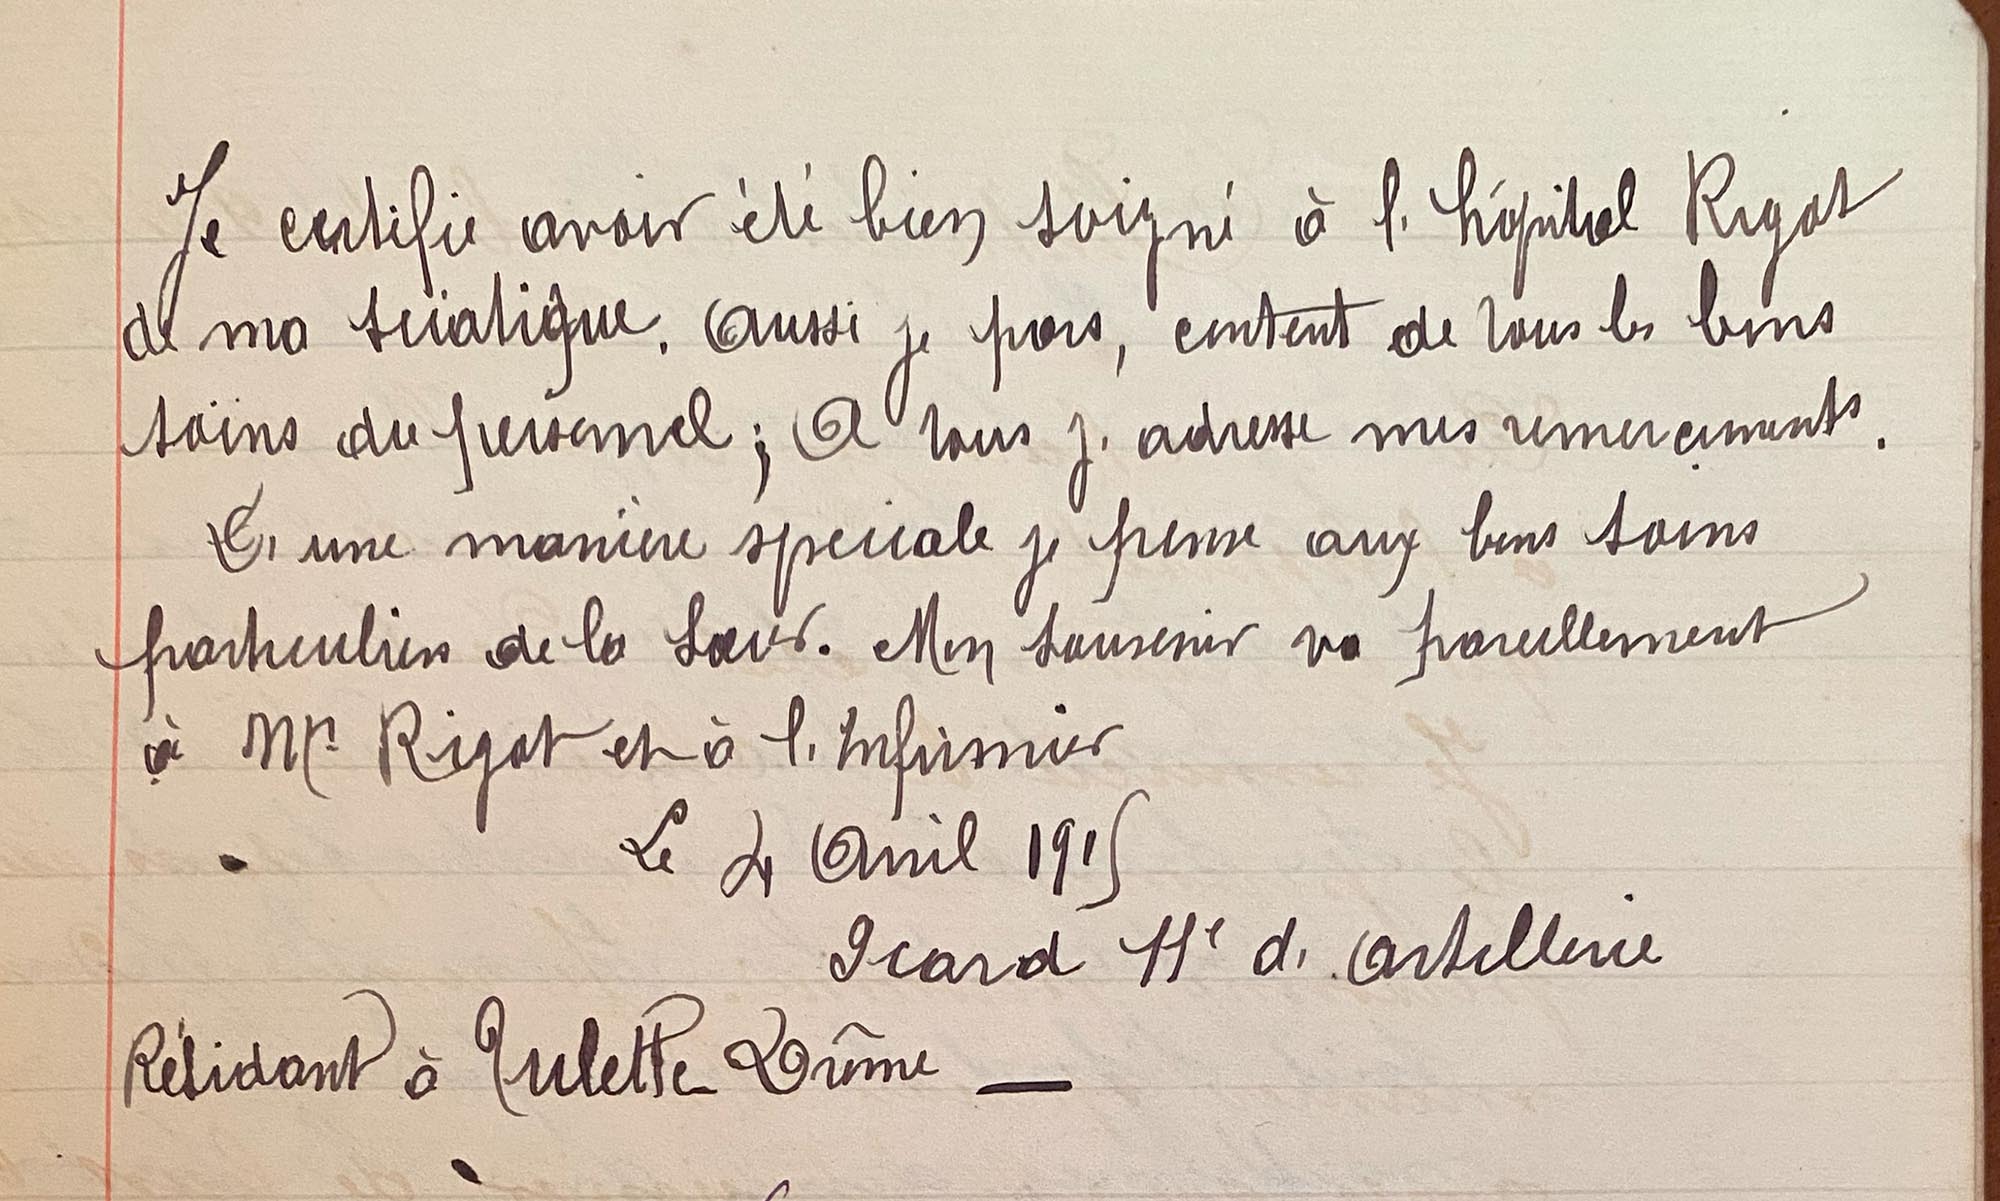 Je certifie avoir été bien soigné à l'hôpital Rigot
de ma sciatique. Aussi je pars, content de tous les bons
soins du personnel ; A tous j'adresse mes remerciements.
D'une manière speciale je pense aux bons soins
particuliers de la Sœur. Mon souvenir va pareillement
à Mr Rigot et à l'Infirmier
Le 4 Avril 1915
Icard 11e d'artillerie
Résidant à Tulette Drôme —